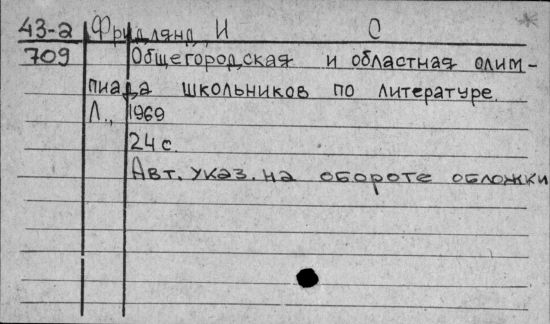 43-2 Фридлянд, И С
709 Общегородская и областная олим-
пиада школьников по литературе.
Л., 1969
24 с.
Авт. указ. на обороте обложки